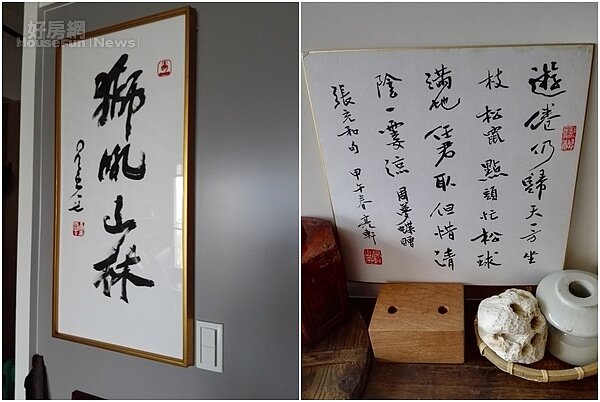 好房網
HouseFun News
獅吼山林
遊倦仍歸天一方坐
枝松鼠點頭忙松球
滿地任君取但惜清
陰一霎涼 周夢蝶
張充和句 甲午春 亮軒